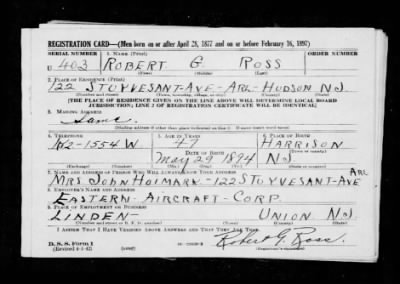 REGISTRATION CARD—(Men born on or after April 28, 1877 and on or before February 16, 1897)
SERIAL NUMBER 1. NAME (Print) ORDER NUMBER
U 403 ROBERT G ROSS
(First) (Middle) (Last)
2. PLACE OF RESIDENCE (Print)
122 STUYVESANT-AVE-ARL-HUDSON NJ
(Number and street) (Town, township, village, or city) (County) (State)
[THE PLACE OF RESIDENCE GIVEN ON THE LINE ABOVE WILL DETERMINE LOCAL BOARD
JURISDICTION; LINE 2 OF REGISTRATION CERTIFICATE WILL BE IDENTICAL]
3. MAILING ADDRESS
Same
[Mailing address if other than place indicated on line 2. If same insert word same]
4. TELEPHONE 5. AGE IN YEARS 6. PLACE OF BIRTH
2-1554 W 47 HARRISON
DATE OF BIRTH (Town or county)
May 29 1894 NJ
(Exchange) (Number) (Mo.) (Day) (Yr.) (State or country)
7. NAME AND ADDRESS OF PERSON WHO WILL ALWAYS KNOW YOUR ADDRESS ARL
MRS JOHN HOIMARK-122 STUYVESANT-AVE
8. EMPLOYER'S NAME AND ADDRESS
EASTERN AIRCRAFT-CORP.
9. PLACE OF EMPLOYMENT OR BUSINESS
LINDEN- UNION NJ
(Number and street or R. F. D. number) (Town) (County) (State)
I AFFIRM THAT I HAVE VERIFIED ABOVE ANSWERS AND THAT THEY ARE TRUE.
D. S. S. Form 1
(Revised 4-1-42) (over) Robert G. Ross.
(Registrant's signature)